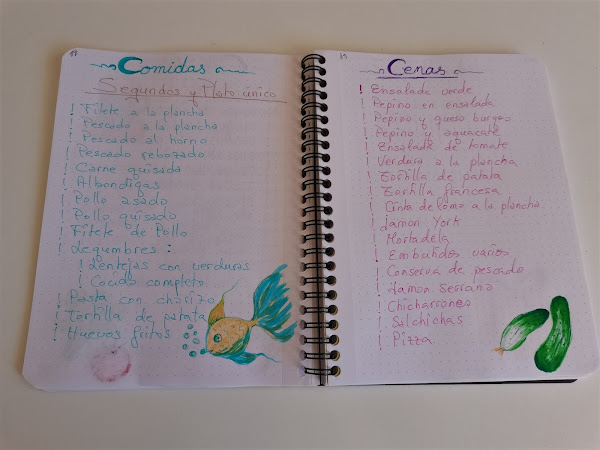 Comidas
Segundos y Plato único
! Filete a la plancha
! Pescado a la plancha
! Pescado al horno
! Pescado rebozado
! Carne guisada
! Albondigas
! Pollo asado
! Pollo guisado
! Filete de Pollo
! Legumbres :
! Lentejas con verduras
! Cocido completo
! Pasta con chorizo
! Tortilla de patata
! Huevos fritos
Cenas
! Ensalada verde
! Pepino en ensalada
! Pepino y queso burgos
! Pepino y aguacate
! Ensalada de tomate
! Verdura a la plancha
! Tortilla de patata
! Tortilla francesa
! Cinta de lomo a la plancha
! Jamon York
! Mortadela
! Embutidos varios
! Conserva de pescado
! Jamon Serrano
! Chicharrones
! Salchichas
! Pizza